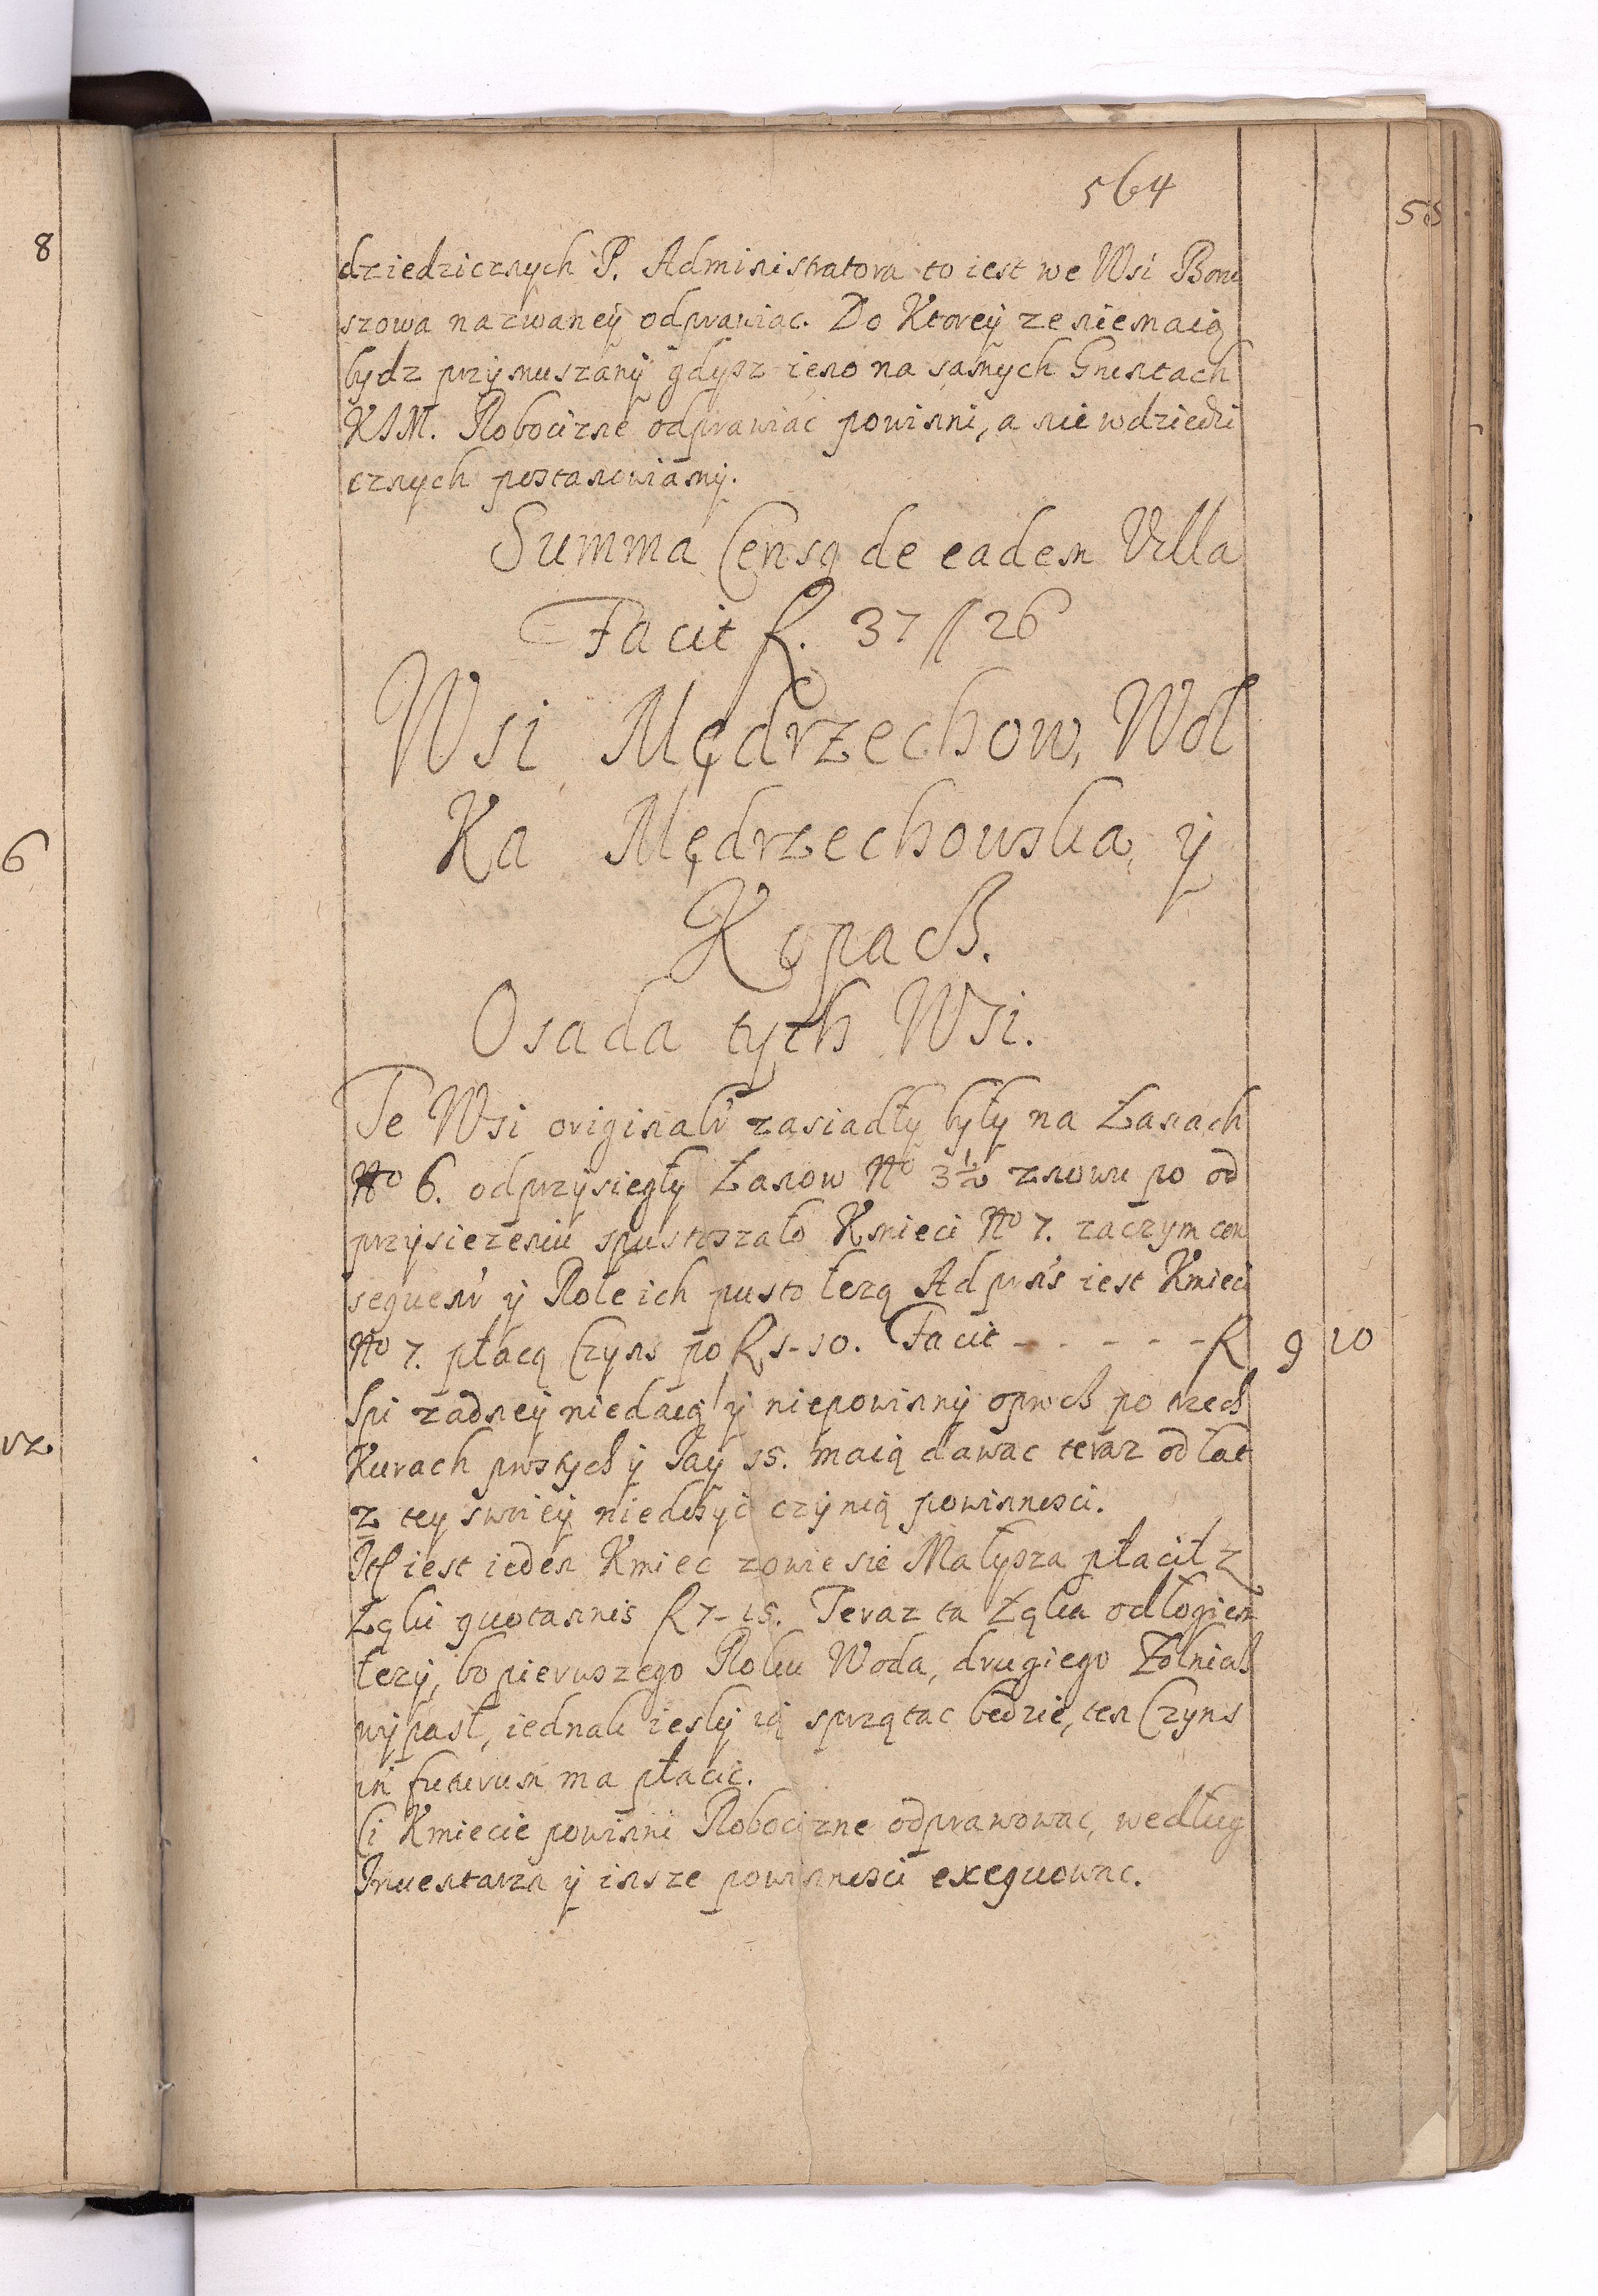 564
dziedzicznych P. Administratora to iest we Wsi Boru
szowa nazwaney odprawiac. Do Ktorey ze niemaią
bydz przymuszany gdysz ieno na samych Gruntach
KJM. Robocizne odprawiac powinni, a nie wdziedzi
cznych postanowiamy.
Summa Censq de eadem Villa
Facit f. 37 // 26
Wsi Mędrzechow, Wol
Ka Mędrzechowska, y
Kąpach.
Osada tych Wsi.
Te Wsi originalr zasiadły były na Łanach
No 6. odprzysiegły Łanow No 3½ znowu po od
przysiezeniu spustoszało Kmieci No 7. zaczym con
sequenr y Role ich pusto lezą Ad prns iest Kmieci
No 7. płacą Czyns po f 1-10. Facit - - - - - f 9 10
Spi zadney niedaią y niepowinny oprocz po trzech
Kurach prostych y Jay 15. maią dawac teraz od lat
2 tey swoiey niedosyc czynią powinnosci.
Itt iest ieden Kmiec zowie sie Małysza płacił z
Łąki quotannis f 7-15. Teraz ta Łąka odłogiem
lezy, bo pierwszego Roku Woda, drugiego Zołnierz
wypasł, iednak iesly ią sprzątac bedzie, ten Czyns
in futurum ma płacic.
Ci Kmiecie powinni Robocizne odprawowac, według
Inwentarza y insze powinnosci exequowac.
8
6